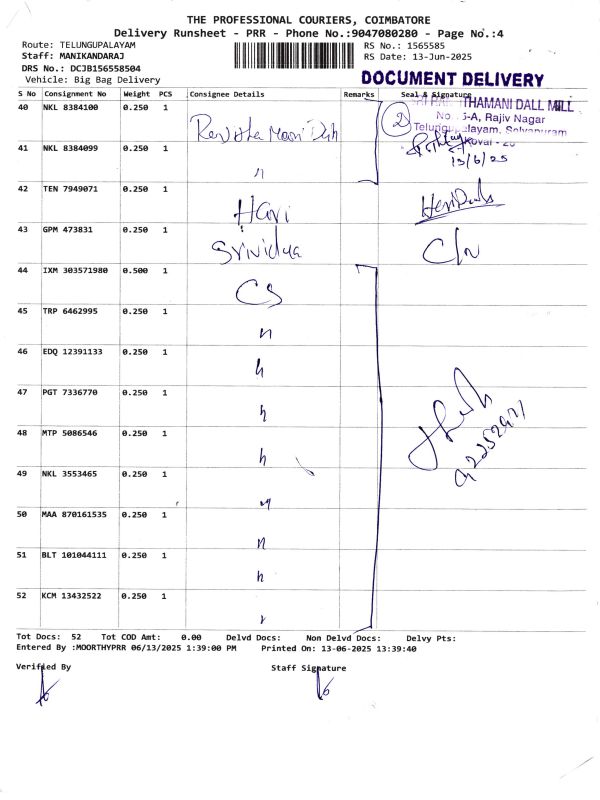 THE PROFESSIONAL COURIERS, COIMBATORE
Delivery Runsheet - PRR - Phone No.:9047080280 - Page No.:4
Route: TELUNGUPALAYAM
RS No.: 1565585
Staff: MANIKANDARAJ
RS Date: 13-Jun-2025
DRS No.: DCJB156558504
Vehicle: Big Bag Delivery
DOCUMENT DELIVERY
S No Consignment No Weight PCS Consignee Details Remarks Seal & Signature
THAMANI DALL MILL
40 NKL 8384100 0.250 1
2 No 5-A, Rajiv Nagar
Selvapuram
41 NKL 8384099 0.250 1 "
13/6/25
42 TEN 7949071 0.250 1 Hari
43 GPM 473831 0.250 1 Srividya
44 IXM 303571980 0.500 1 CS
45 TRP 6462995 0.250 1 "
46 EDQ 12391133 0.250 1 "
47 PGT 7336770 0.250 1 "
48 MTP 5086546 0.250 1 "
49 NKL 3553465 0.250 1 "
50 MAA 870161535 0.250 1 "
51 BLT 101044111 0.250 1 "
52 KCM 13432522 0.250 1 "
Tot Docs: 52 Tot COD Amt: 0.00 Delvd Docs: Non Delvd Docs: Delvy Pts:
Entered By :MOORTHYPRR 06/13/2025 1:39:00 PM Printed On: 13-06-2025 13:39:40
Verified By Staff Signature